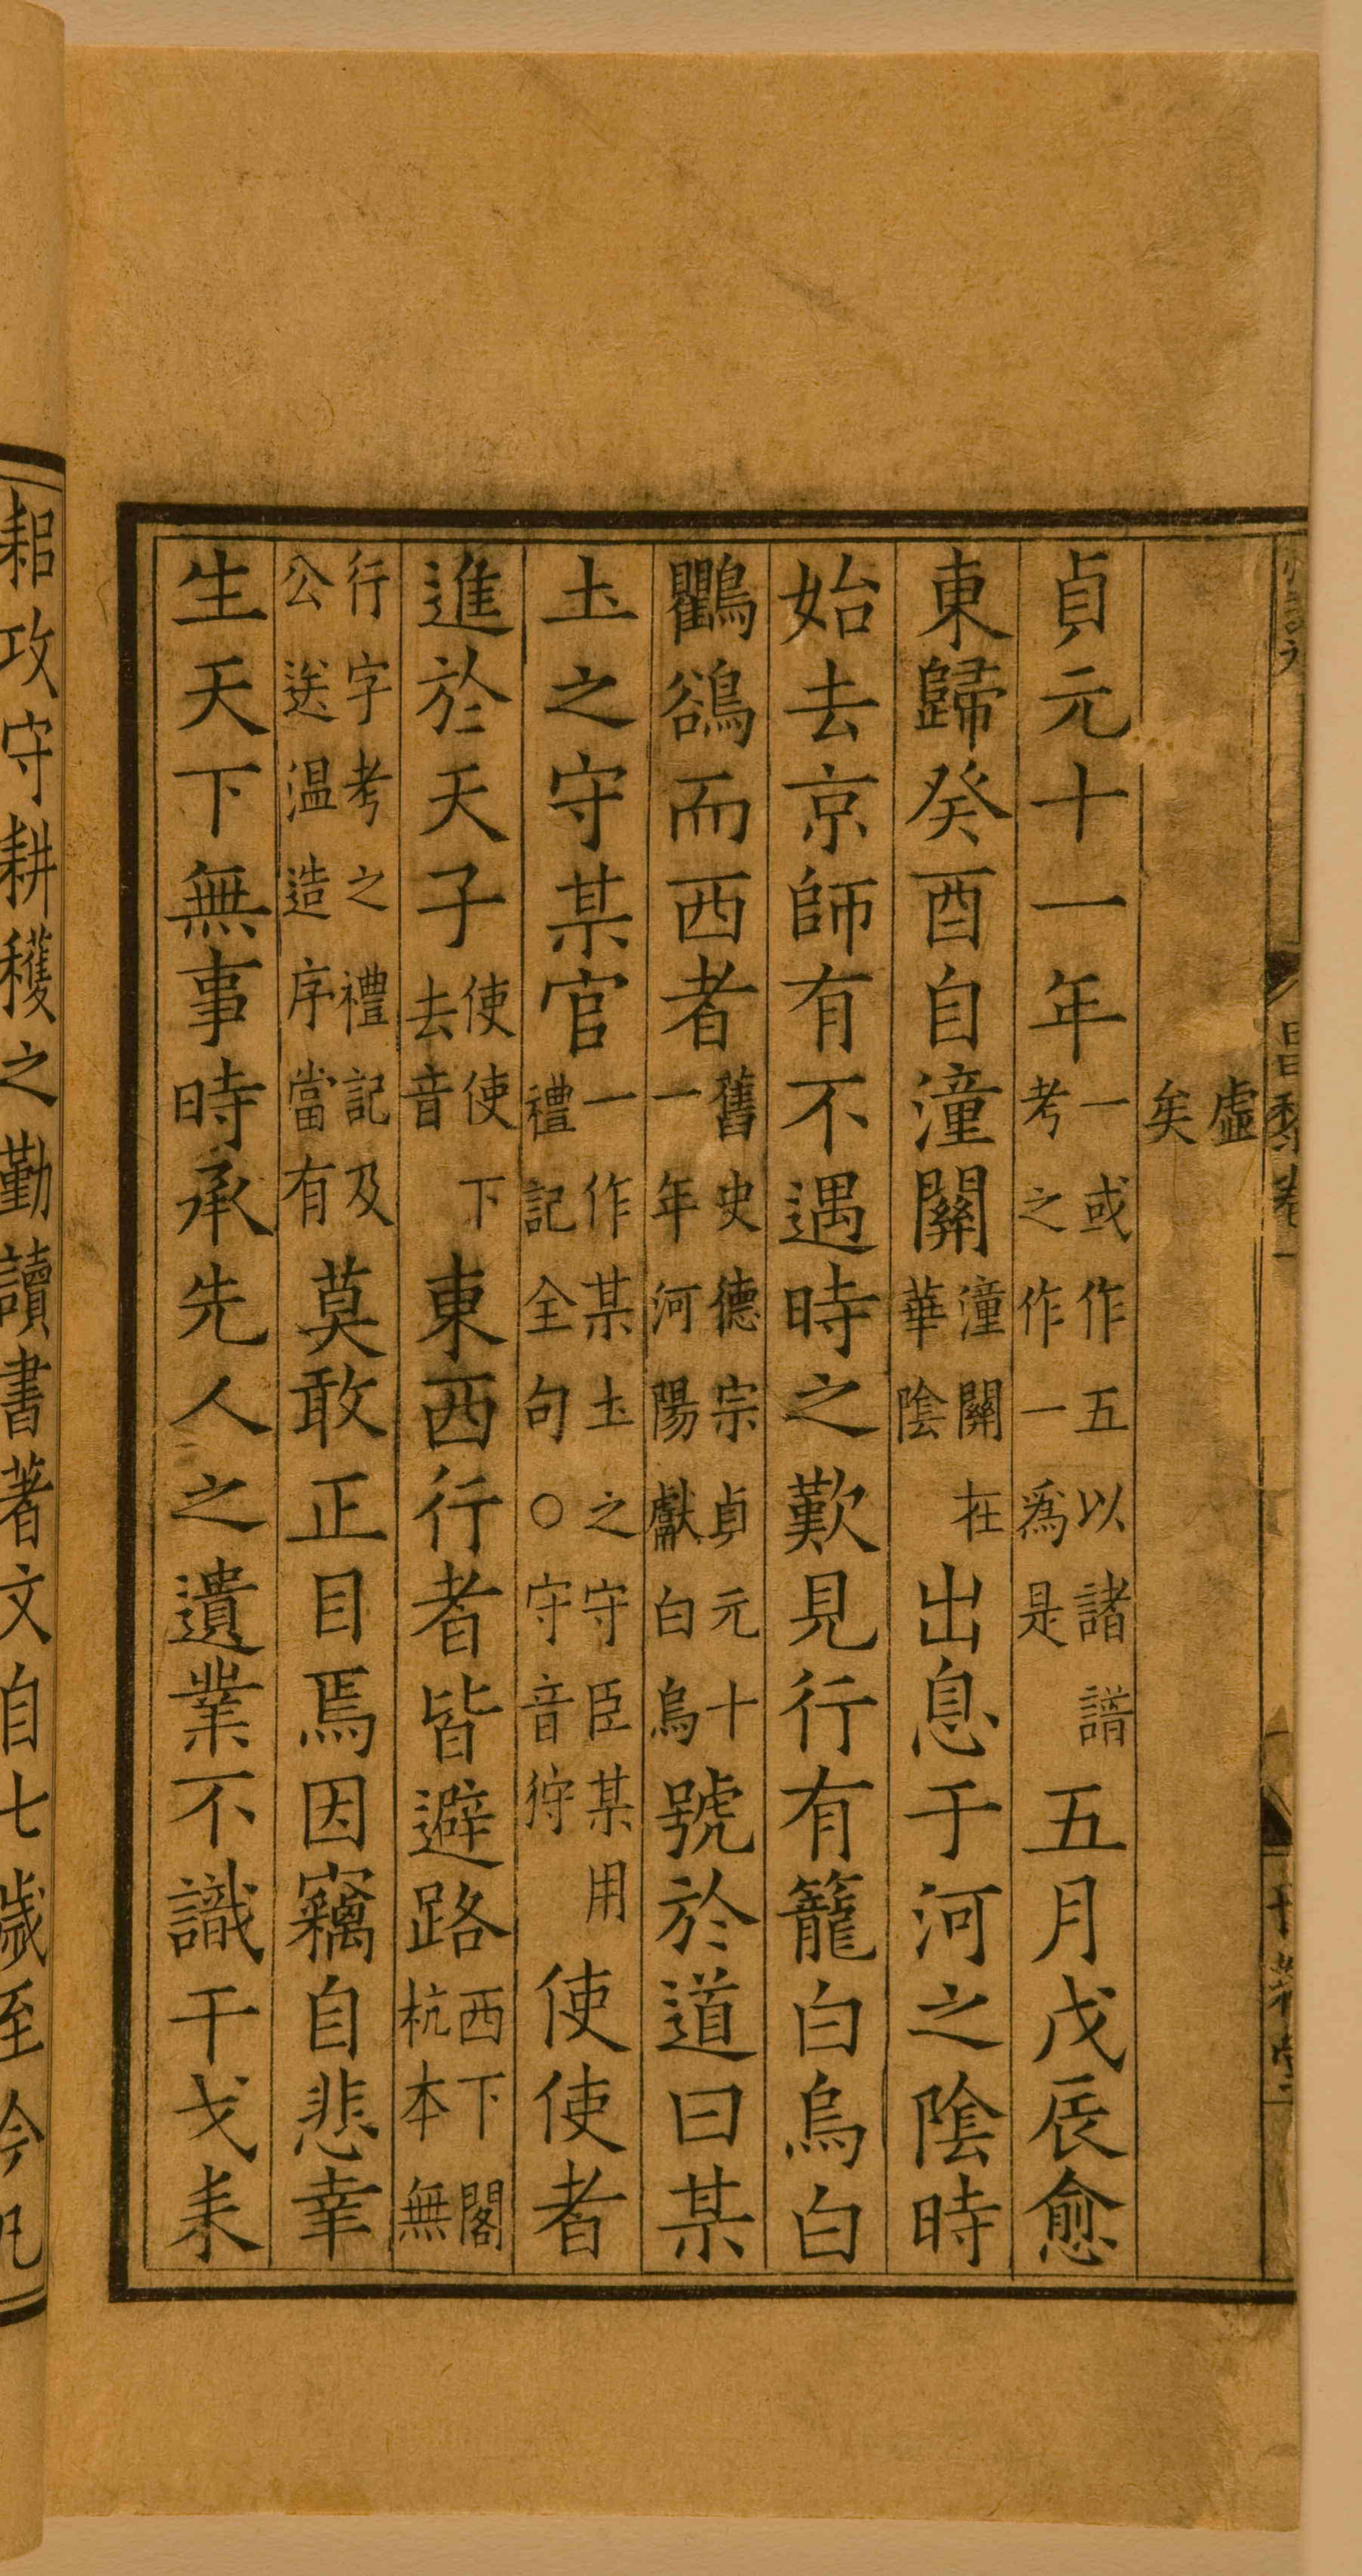 虛矣
貞元十一年一或作五以諸譜考之作一爲是五月戊辰愈
東歸癸酉自潼關潼關在華陰出息于河之陰時
始去京師有不遇時之歎見行有籠白烏白
鸜鵒而西者舊史德宗貞元十一年河陽獻白烏號於道曰某
土之守某官一作某土之守臣某用禮記全句〇守音狩使使者
進於天子使使下去音東西行者皆避路西下閣杭本無
行字考之禮記及公送温造序當有莫敢正目焉因竊自悲幸
生天下無事時承先人之遺業不識干戈耒
耜攻守耕穫之勤讀書著文自七歲至今凡